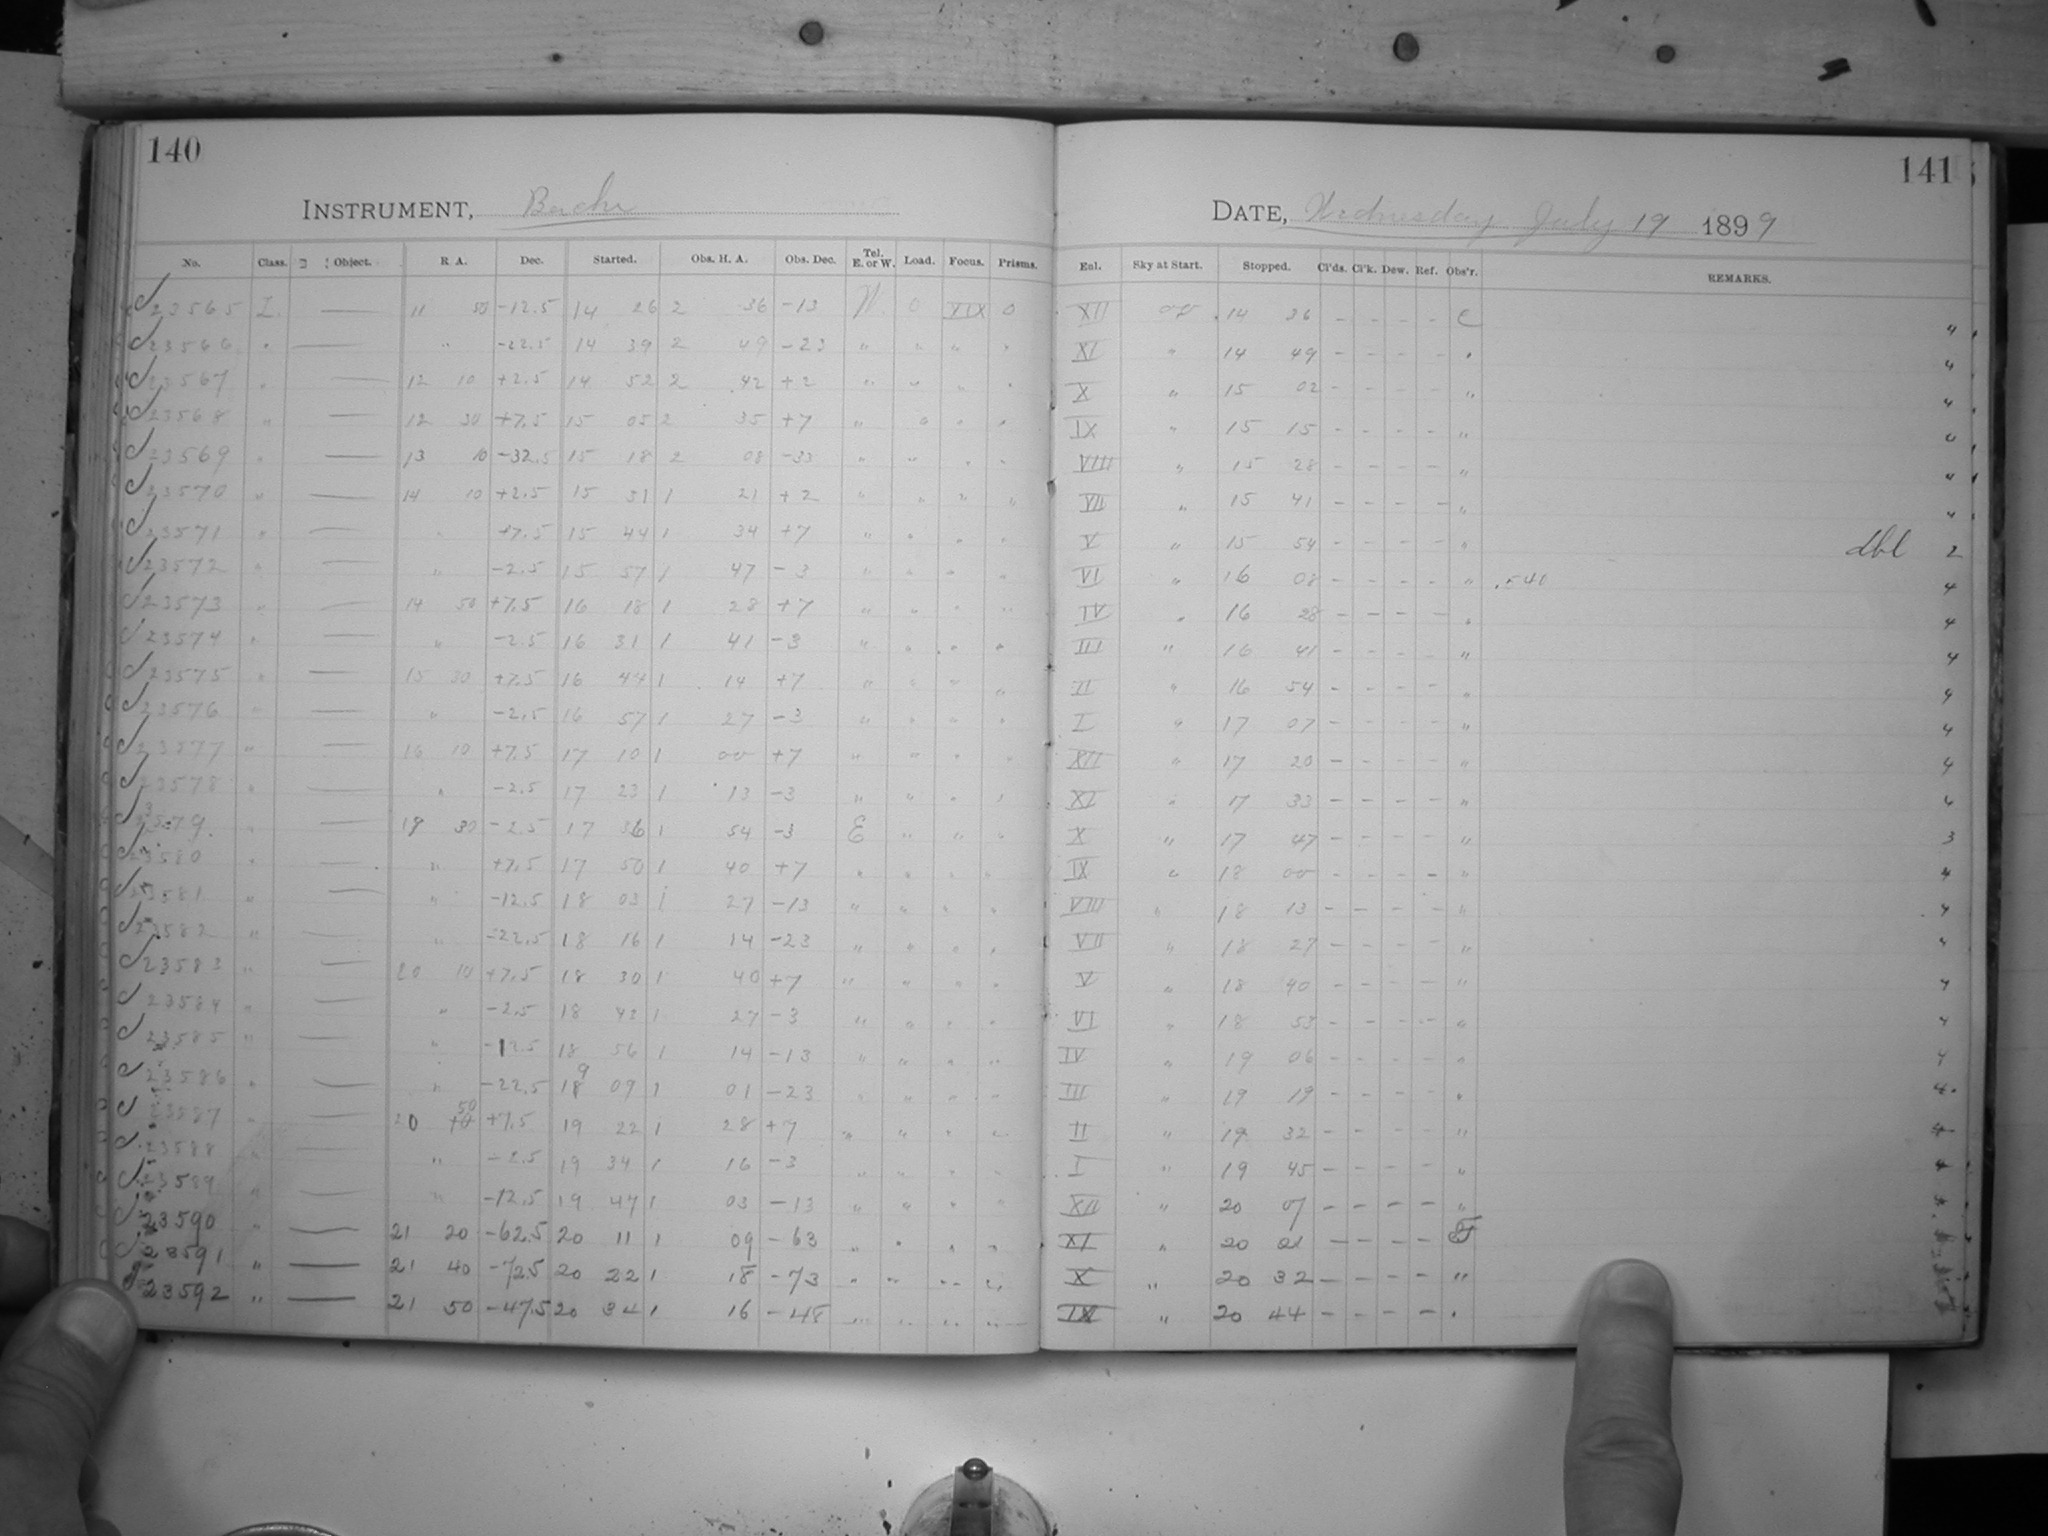 140
141
INSTRUMENT, Bache
DATE, Wednesday July 19 1899
No. Class. Object. R A. Dec. Started. Obs. H. A. Obs. Dec. Tel. E. or W. Load. Focus. Prisms. Enl. Sky at Start. Stopped. Cl'ds. Cl'k. Dew. Ref. Obs'r. REMARKS.
23565 I. — 11 50 -12.5 14 26 2 36 -13 W. 0 XIX 0 XII 14 36 - - - - C "
23566 " — " -22.5 14 39 2 49 -23 " " " " XI " 14 49 - - - - " "
23567 " — 12 10 +2.5 14 52 2 42 +2 " " " " X " 15 02 - - - - " "
23568 " — 12 30 +7.5 15 05 2 35 +7 " " " " IX " 15 15 - - - - " "
23569 " — 13 10 -32.5 15 18 2 08 -33 " " " " VIII " 15 28 - - - - " "
23570 " — 14 10 +2.5 15 31 1 21 +2 " " " " VII " 15 41 - - - - " "
23571 " — " +7.5 15 44 1 34 +7 " " " " V " 15 54 - - - - " dbl 2
23572 " — " -2.5 15 57 1 47 -3 " " " " VI " 16 08 - - - - " 4
23573 " — 14 50 +7.5 16 18 1 28 +7 " " " " IV " 16 28 - - - - " 4
23574 " — " -2.5 16 31 1 41 -3 " " " " III " 16 41 - - - - " 4
23575 " — 15 30 +7.5 16 44 1 14 +7 " " " " II " 16 54 - - - - " 4
23576 " — " -2.5 16 57 1 27 -3 " " " " I " 17 07 - - - - " 4
23577 " — 16 10 +7.5 17 10 1 00 +7 " " " " XII " 17 20 - - - - " 4
23578 " — " -2.5 17 23 1 13 -3 " " " " XI " 17 33 - - - - " 4
23579 " — 18 30 -2.5 17 36 1 54 -3 E " " " X " 17 47 - - - - " 3
23580 " — " +7.5 17 50 1 40 +7 " " " " IX " 18 00 - - - - " 4
23581 " — " -12.5 18 03 1 27 -13 " " " " VIII " 18 13 - - - - " 4
23582 " — " -22.5 18 16 1 14 -23 " " " " VII " 18 27 - - - - " 4
23583 " — 20 10 +7.5 18 30 1 40 +7 " " " " V " 18 40 - - - - " 4
23584 " — " -2.5 18 43 1 27 -3 " " " " VI " 18 53 - - - - " 4
23585 " — " -12.5 18 56 1 14 -13 " " " " IV " 19 06 - - - - " 4
23586 " — " -22.5 19 09 1 01 -23 " " " " III " 19 19 - - - - " 4
23587 " — 20 50 +7.5 19 22 1 28 +7 " " " " II " 19 32 - - - - " 4
23588 " — " -2.5 19 34 1 16 -3 " " " " I " 19 45 - - - - " 4
23589 " — " -12.5 19 47 1 03 -13 " " " " XII " 20 07 - - - - "
23590 " — 21 20 -62.5 20 11 1 09 -63 " " " " XI " 20 21 - - - -
23591 " — 21 40 -72.5 20 22 1 18 -73 " " " " X " 20 32 - - - - "
23592 " — 21 50 -47.5 20 34 1 16 -48 " " " " IX " 20 44 - - - - "